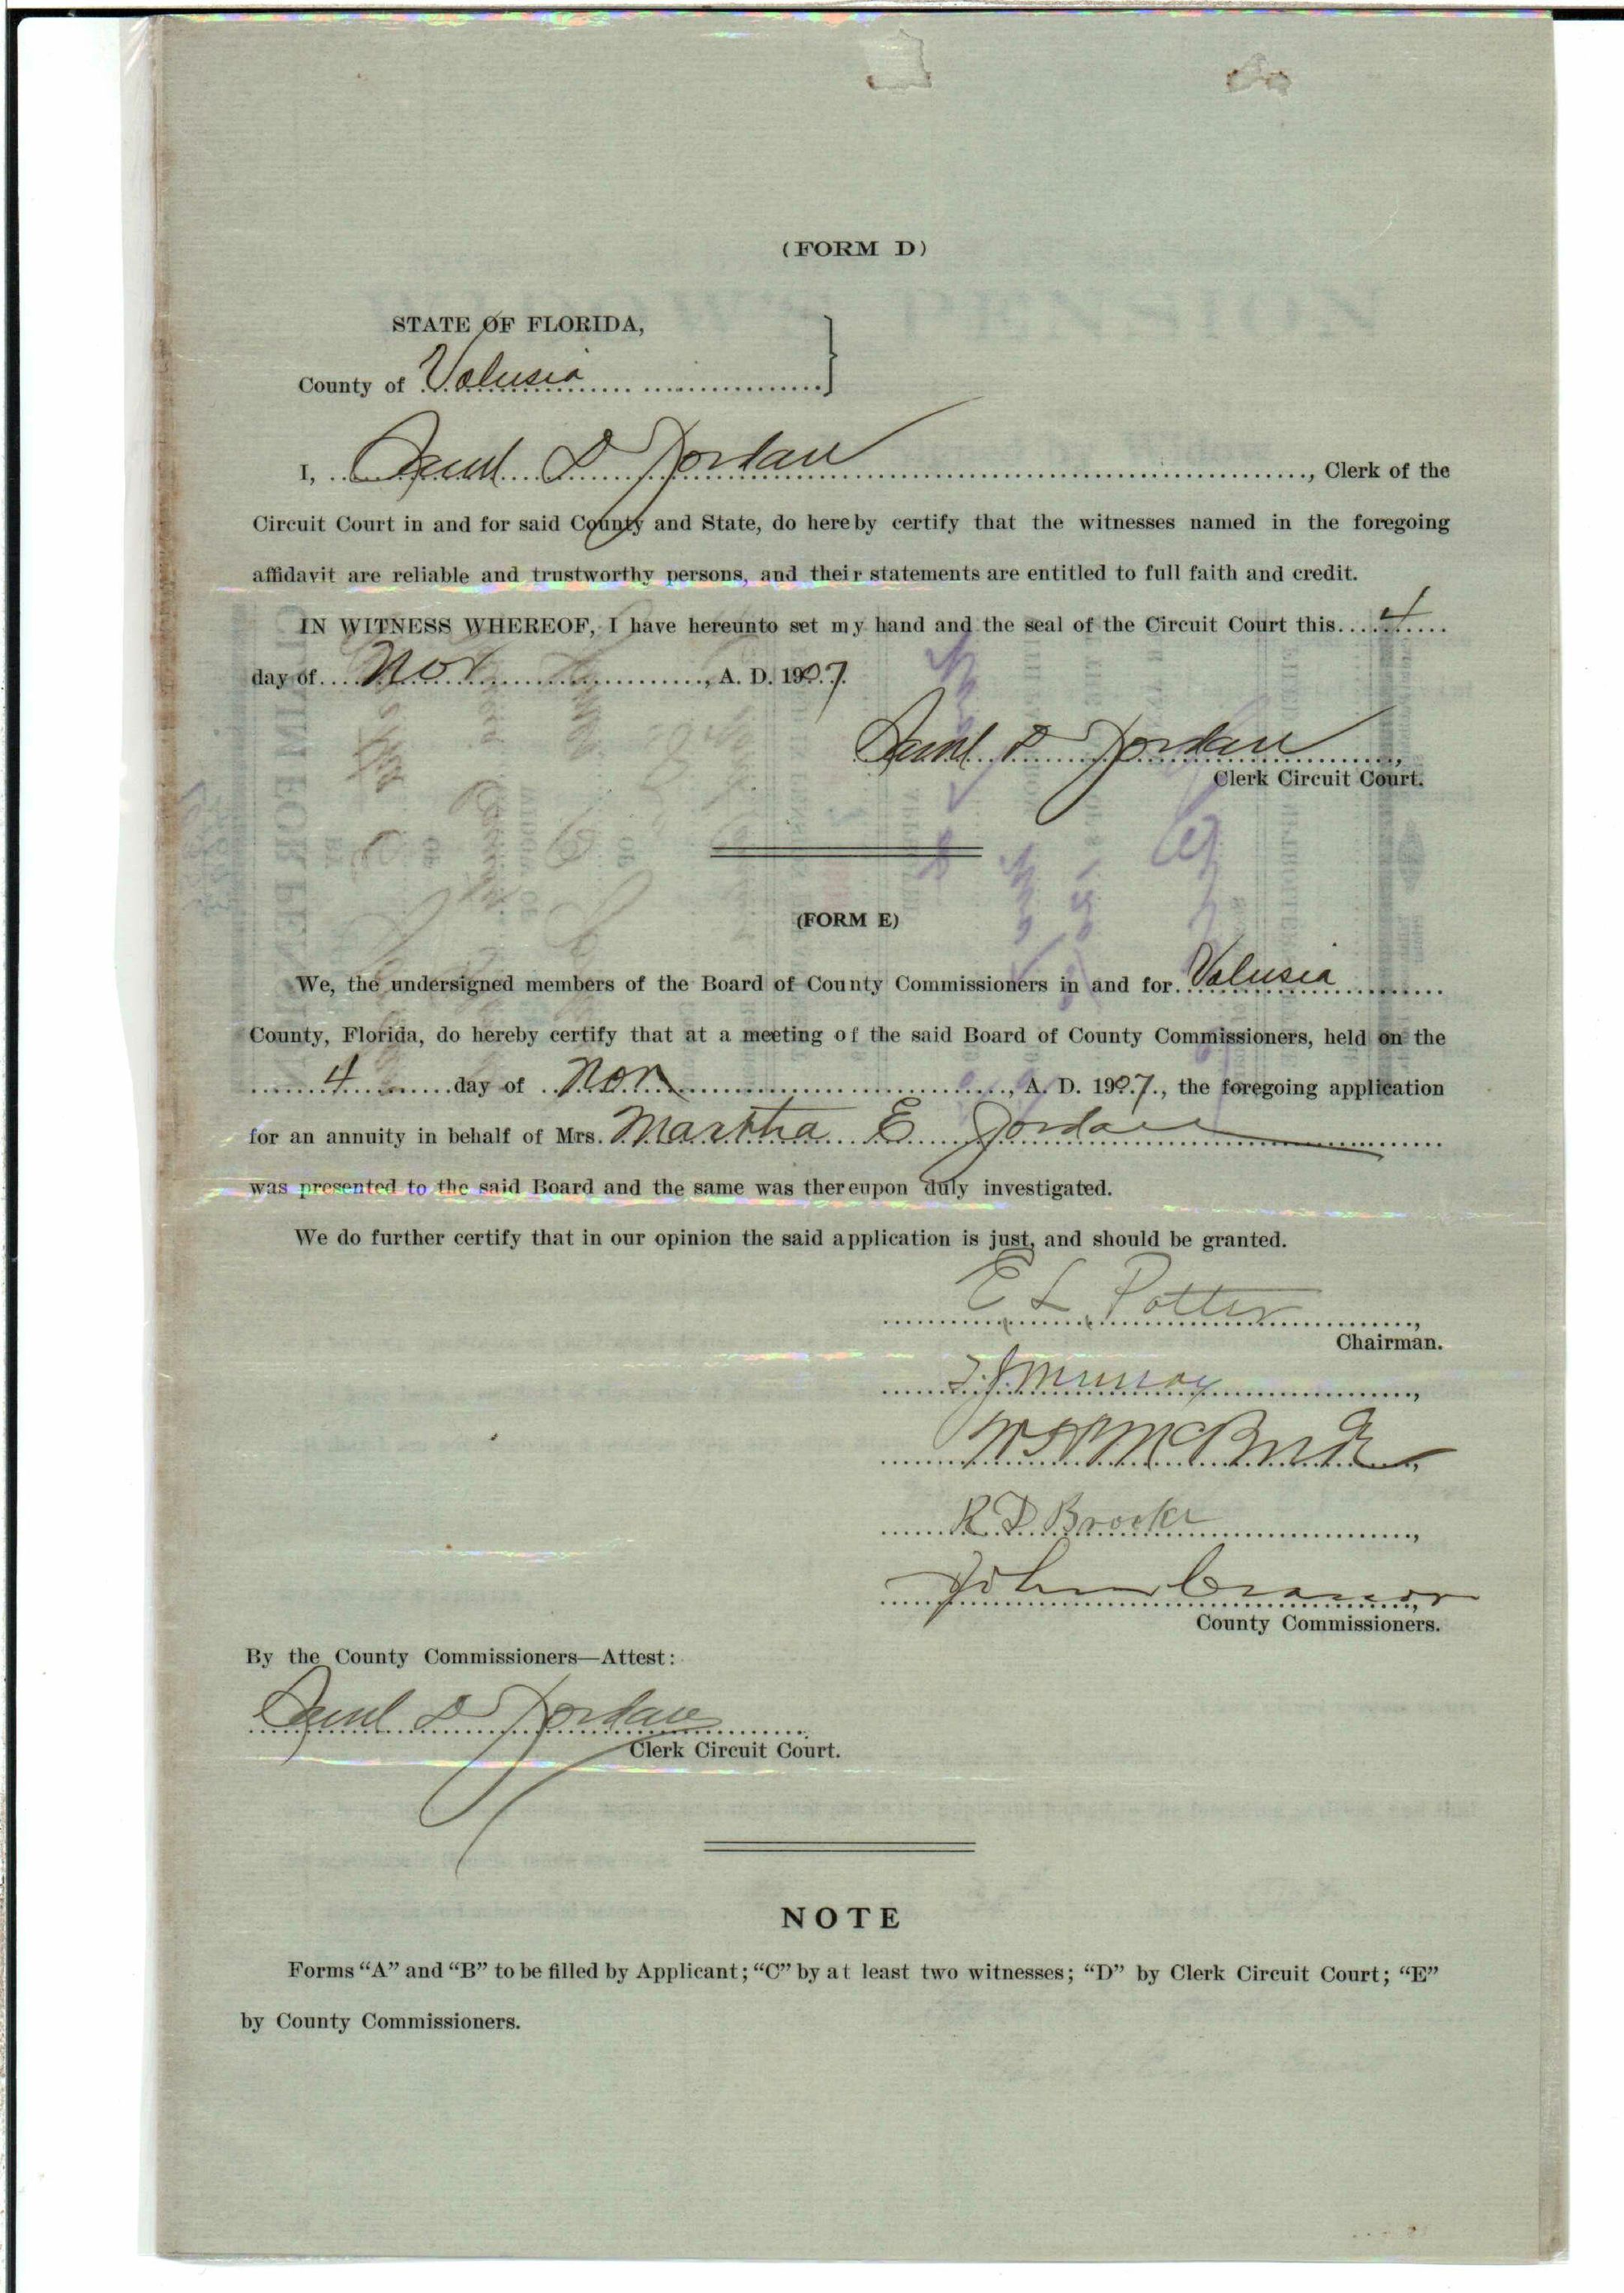 (FORM D)
STATE OF FLORIDA,
County of Volusia
I, Saml D Jordan, Clerk of the
Circuit Court in and for said County and State, do hereby certify that the witnesses named in the foregoing
affidavit are reliable and trustworthy persons, and their statements are entitled to full faith and credit.
IN WITNESS WHEREOF, I have hereunto set my hand and the seal of the Circuit Court this 4
day of Nov, A. D. 1907.
Saml D Jordan
Clerk Circuit Court.
(FORM E)
We, the undersigned members of the Board of County Commissioners in and for Volusia
County, Florida, do hereby certify that at a meeting of the said Board of County Commissioners, held on the
4 day of Nov, A. D. 1907, the foregoing application
for an annuity in behalf of Mrs. Martha E Jordan
was presented to the said Board and the same was thereupon duly investigated.
We do further certify that in our opinion the said application is just, and should be granted.
E L Potter
Chairman.
Murray
McBride
R D Brooke
John
County Commissioners.
By the County Commissioners—Attest:
Saml D Jordan
Clerk Circuit Court.
NOTE
Forms “A” and “B” to be filled by Applicant; “C” by at least two witnesses; “D” by Clerk Circuit Court; “E”
by County Commissioners.